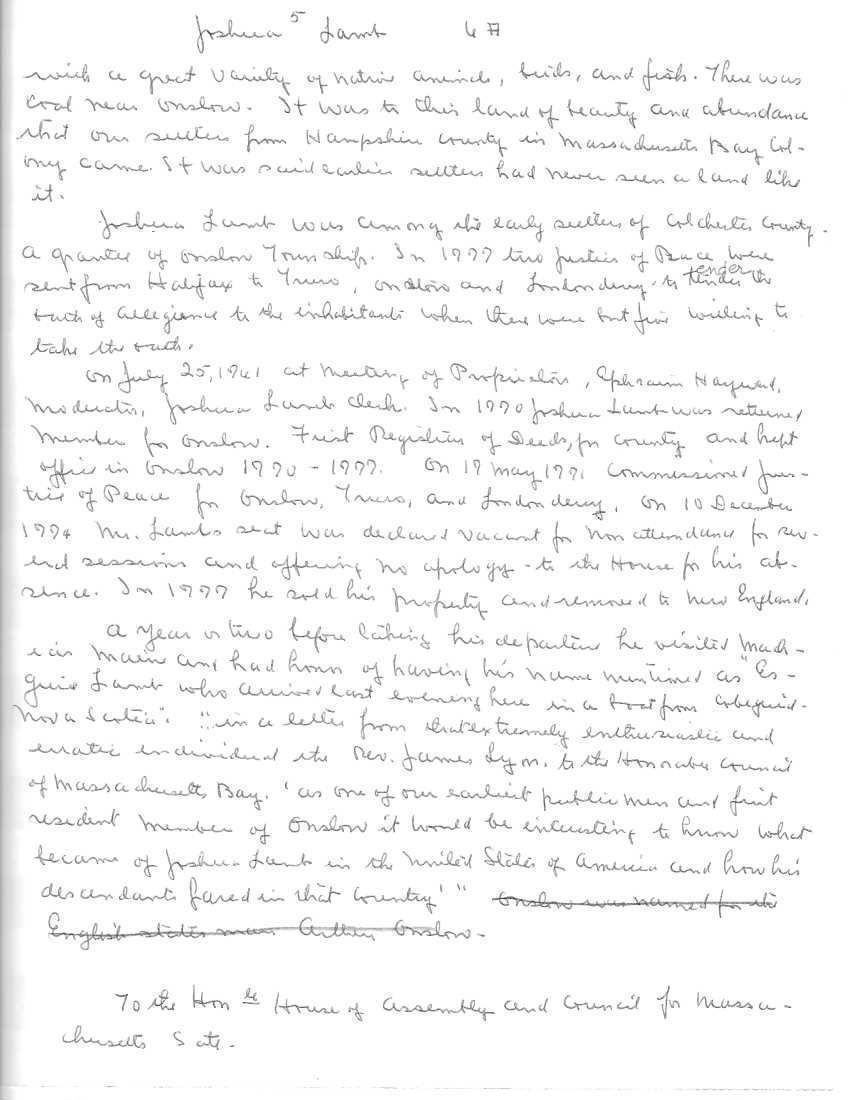 Joshua 5 Lamb 6 A
with a great variety of native animals, birds, and fish. There was
coal near Onslow. It was to this land of beauty and abundance
that our settlers from Hampshire County in Massachusetts Bay Col-
ony came. It was said earlier settlers had never seen a land like
it.
Joshua Lamb was among the early settlers of Colchester County.
A grantee of Onslow Township. In 1777 two Justices of Peace were
sent from Halifax to Truro, Onslow and Londonderry to tender the
tender
oath of allegiance to the inhabitants when there were but five willing to
take the oath.
On July 25, at meeting of Proprietors, Ephraim Hayward,
moderator, Joshua Lamb Clerk. In 1770 Joshua Lamb was returned
member for Onslow. First Registrar of Deeds, for county and kept
office in Onslow 1770 - 1777. On 17 May 1771 commissioned Jus-
tice of Peace for Onslow, Truro, and Londonderry. On 10 December
1774 Mr. Lamb's seat was declared vacant for non attendance for sev-
eral sessions and offering no apology - to the House for his ab-
sence. In 1777 he sold his property and removed to New England.
A year or two before taking his departure he visited Mach-
ias Maine and had honor of having his name mentioned as "Es-
quire Lamb who arrived last evening here in a boat from Cobequid-
Nova Scotia". "in a letter from that extremely enthusiastic and
erratic individual the Rev. James Lyon, to the Honorable Council
of Massachusetts Bay. 'as one of our earliest public men and first
resident member of Onslow it would be interesting to know what
became of Joshua Lamb in the United States of America and how his
descendants fared in that country'" Onslow was named for the
English states man Arthur Onslow.
To the Hon ble House of Assembly and Council for Massa-
chusetts State.